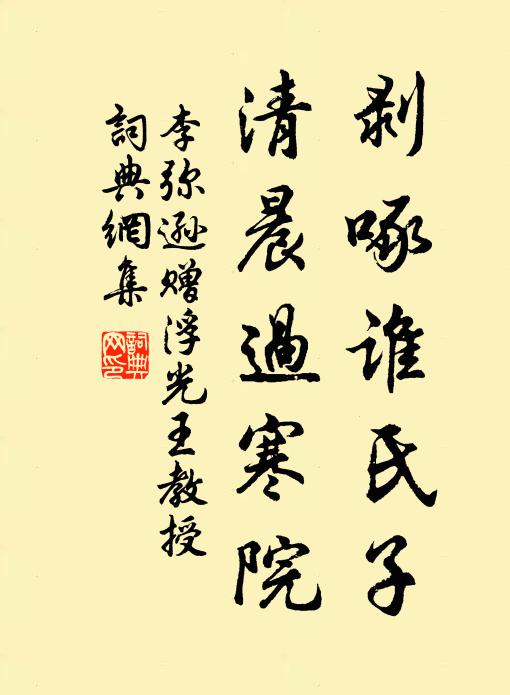 剥啄谁氏子
清晨過寒院
李弥遜赠浮光王教授
詞典網集
詞典網印